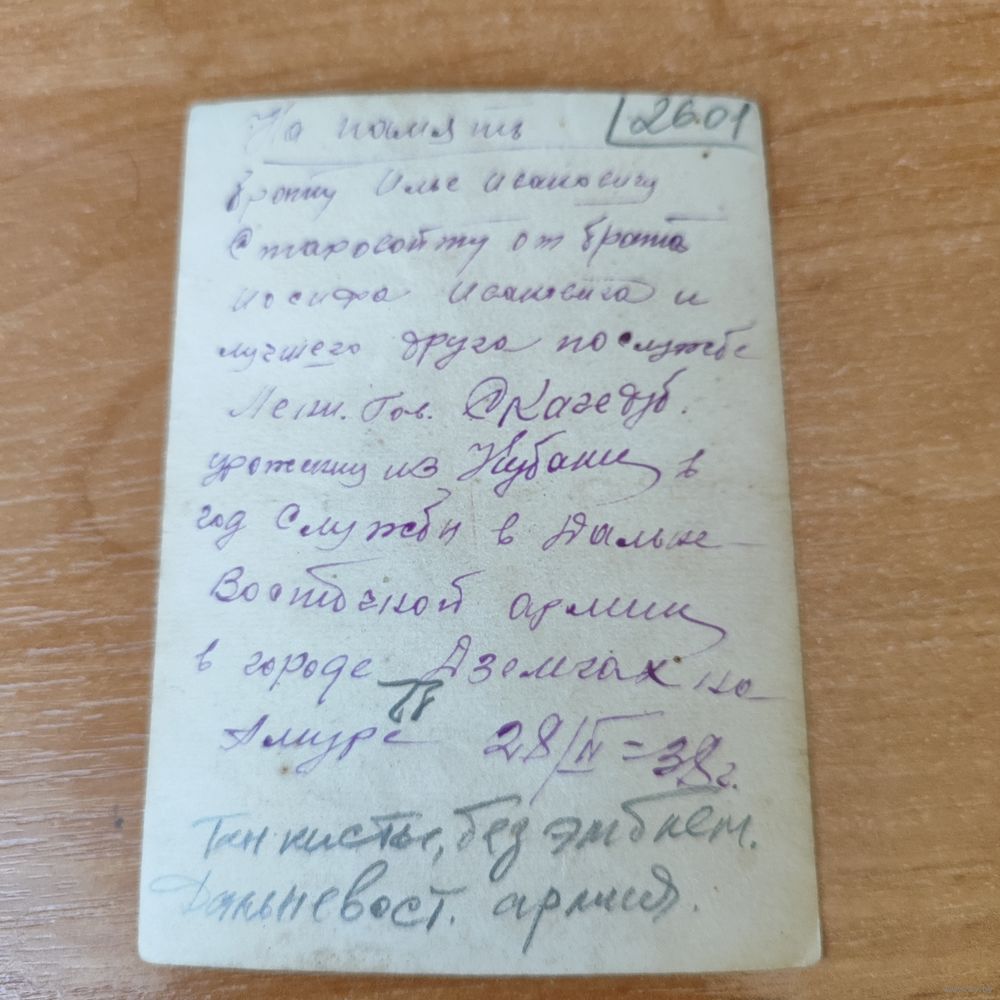 На память
26.01
братку Илье Ивановичу
Старовойту от брата
Иосифа Ивановича и
лучшего друга по службе
Лейт. тов.
урожениц из Кубани в
год службы в Дальне-
Восточной армии
в городе Дземгах на
Амуре 28/II=38г.
Танкисты, без эмблем.
Дальневост. армия.